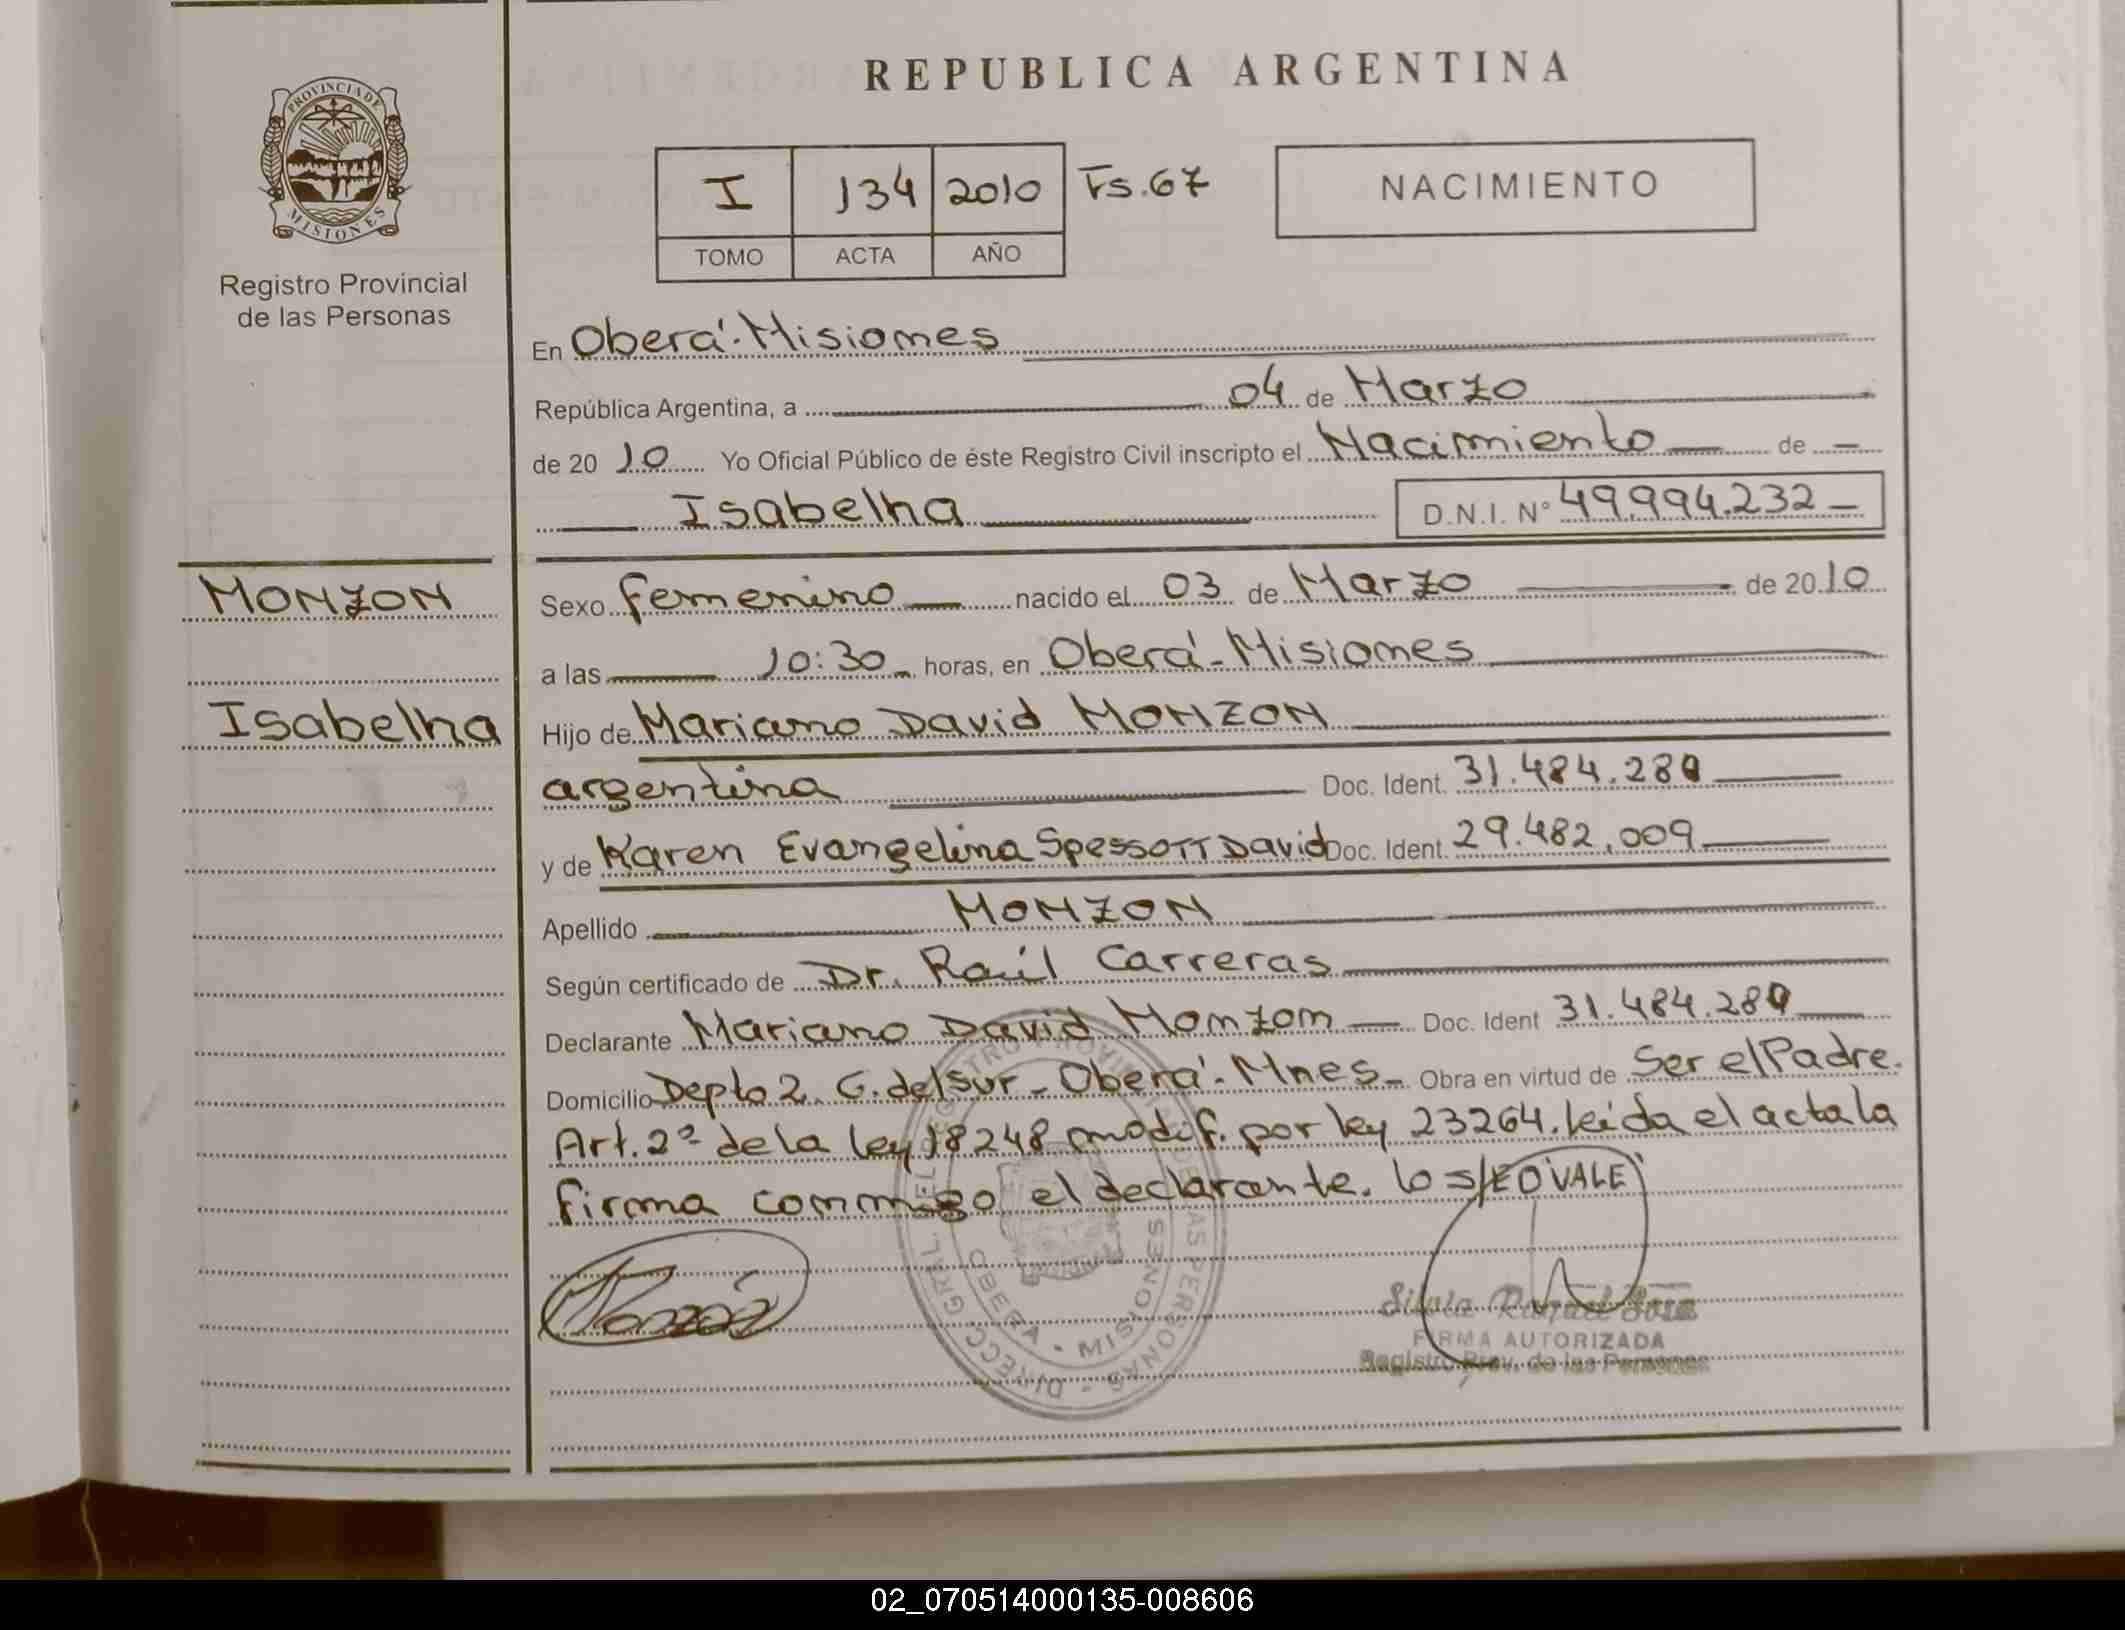 REPUBLICA ARGENTINA
PROVINCIA DE MISIONES
Registro Provincial
de las Personas
I 134 2010 Fs.67
TOMO ACTA AÑO
NACIMIENTO
En Oberá-Misiones
República Argentina, a 04 de Marzo
de 20 10 Yo Oficial Público de éste Registro Civil inscripto el Nacimiento de
Isabelha D.N.I. N° 49.994.232
MONZON
Isabelha
Sexo femenino nacido el 03 de Marzo de 20 10
a las 10:30 horas, en Oberá-Misiones
Hijo de Mariano David MONZON
argentina Doc. Ident. 31.484.28
y de Karen Evangelina Spessott David Doc. Ident. 29.482.009
Apellido MONZON
Según certificado de Dr. Raúl Carreras
Declarante Mariano David Monzon Doc. Ident 31.484.28
Domicilio Depto 2. C. del Sur - Oberá - Mnes - Obra en virtud de Ser el Padre.
Art. 2º de la ley 18248 modif. por ley 23264. leída el acta la
firma conmigo el declarante. lo s/EO VALE
FIRMA AUTORIZADA
Registro Prov. de las Personas
OBERA - MISIONES
02_070514000135-008606